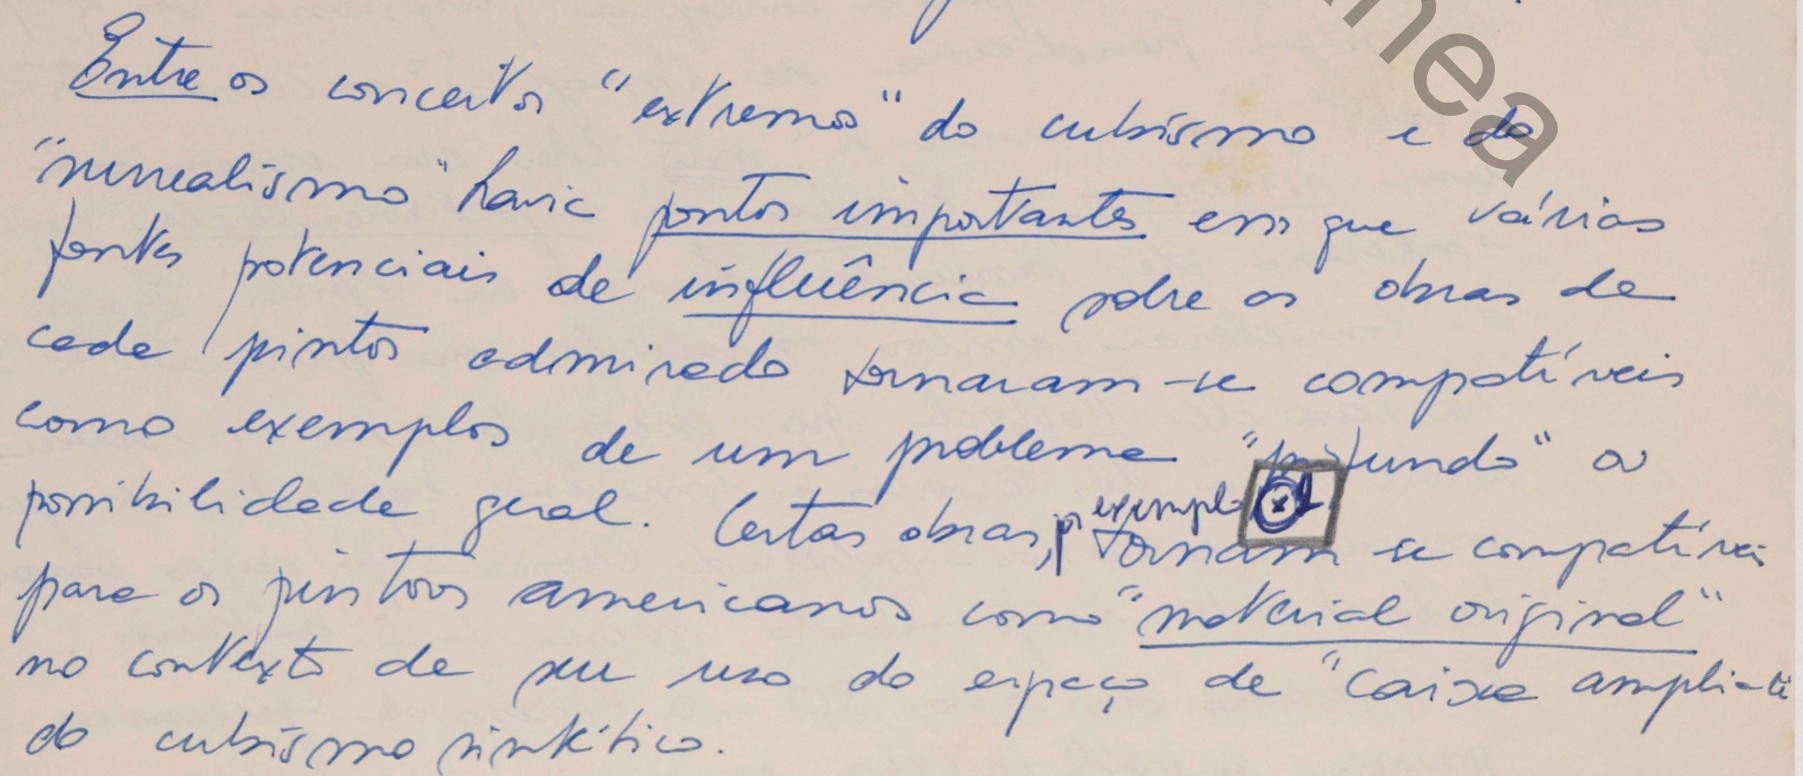 nea
Entre os conceitos "extremos" do cubismo e do
"surrealismo" havia pontos importantes em que várias
fontes potenciais de influência sobre as obras de
cada pintor admirado tornaram-se compatíveis
como exemplos de um problema "profundo" ou
possibilidade geral. Certas obras, p. exemplo ⊗1 tornam-se compatíveis
para os pintores americanos como "material original"
no contexto de seu uso do espaço de "caixa
do cubismo sintético.